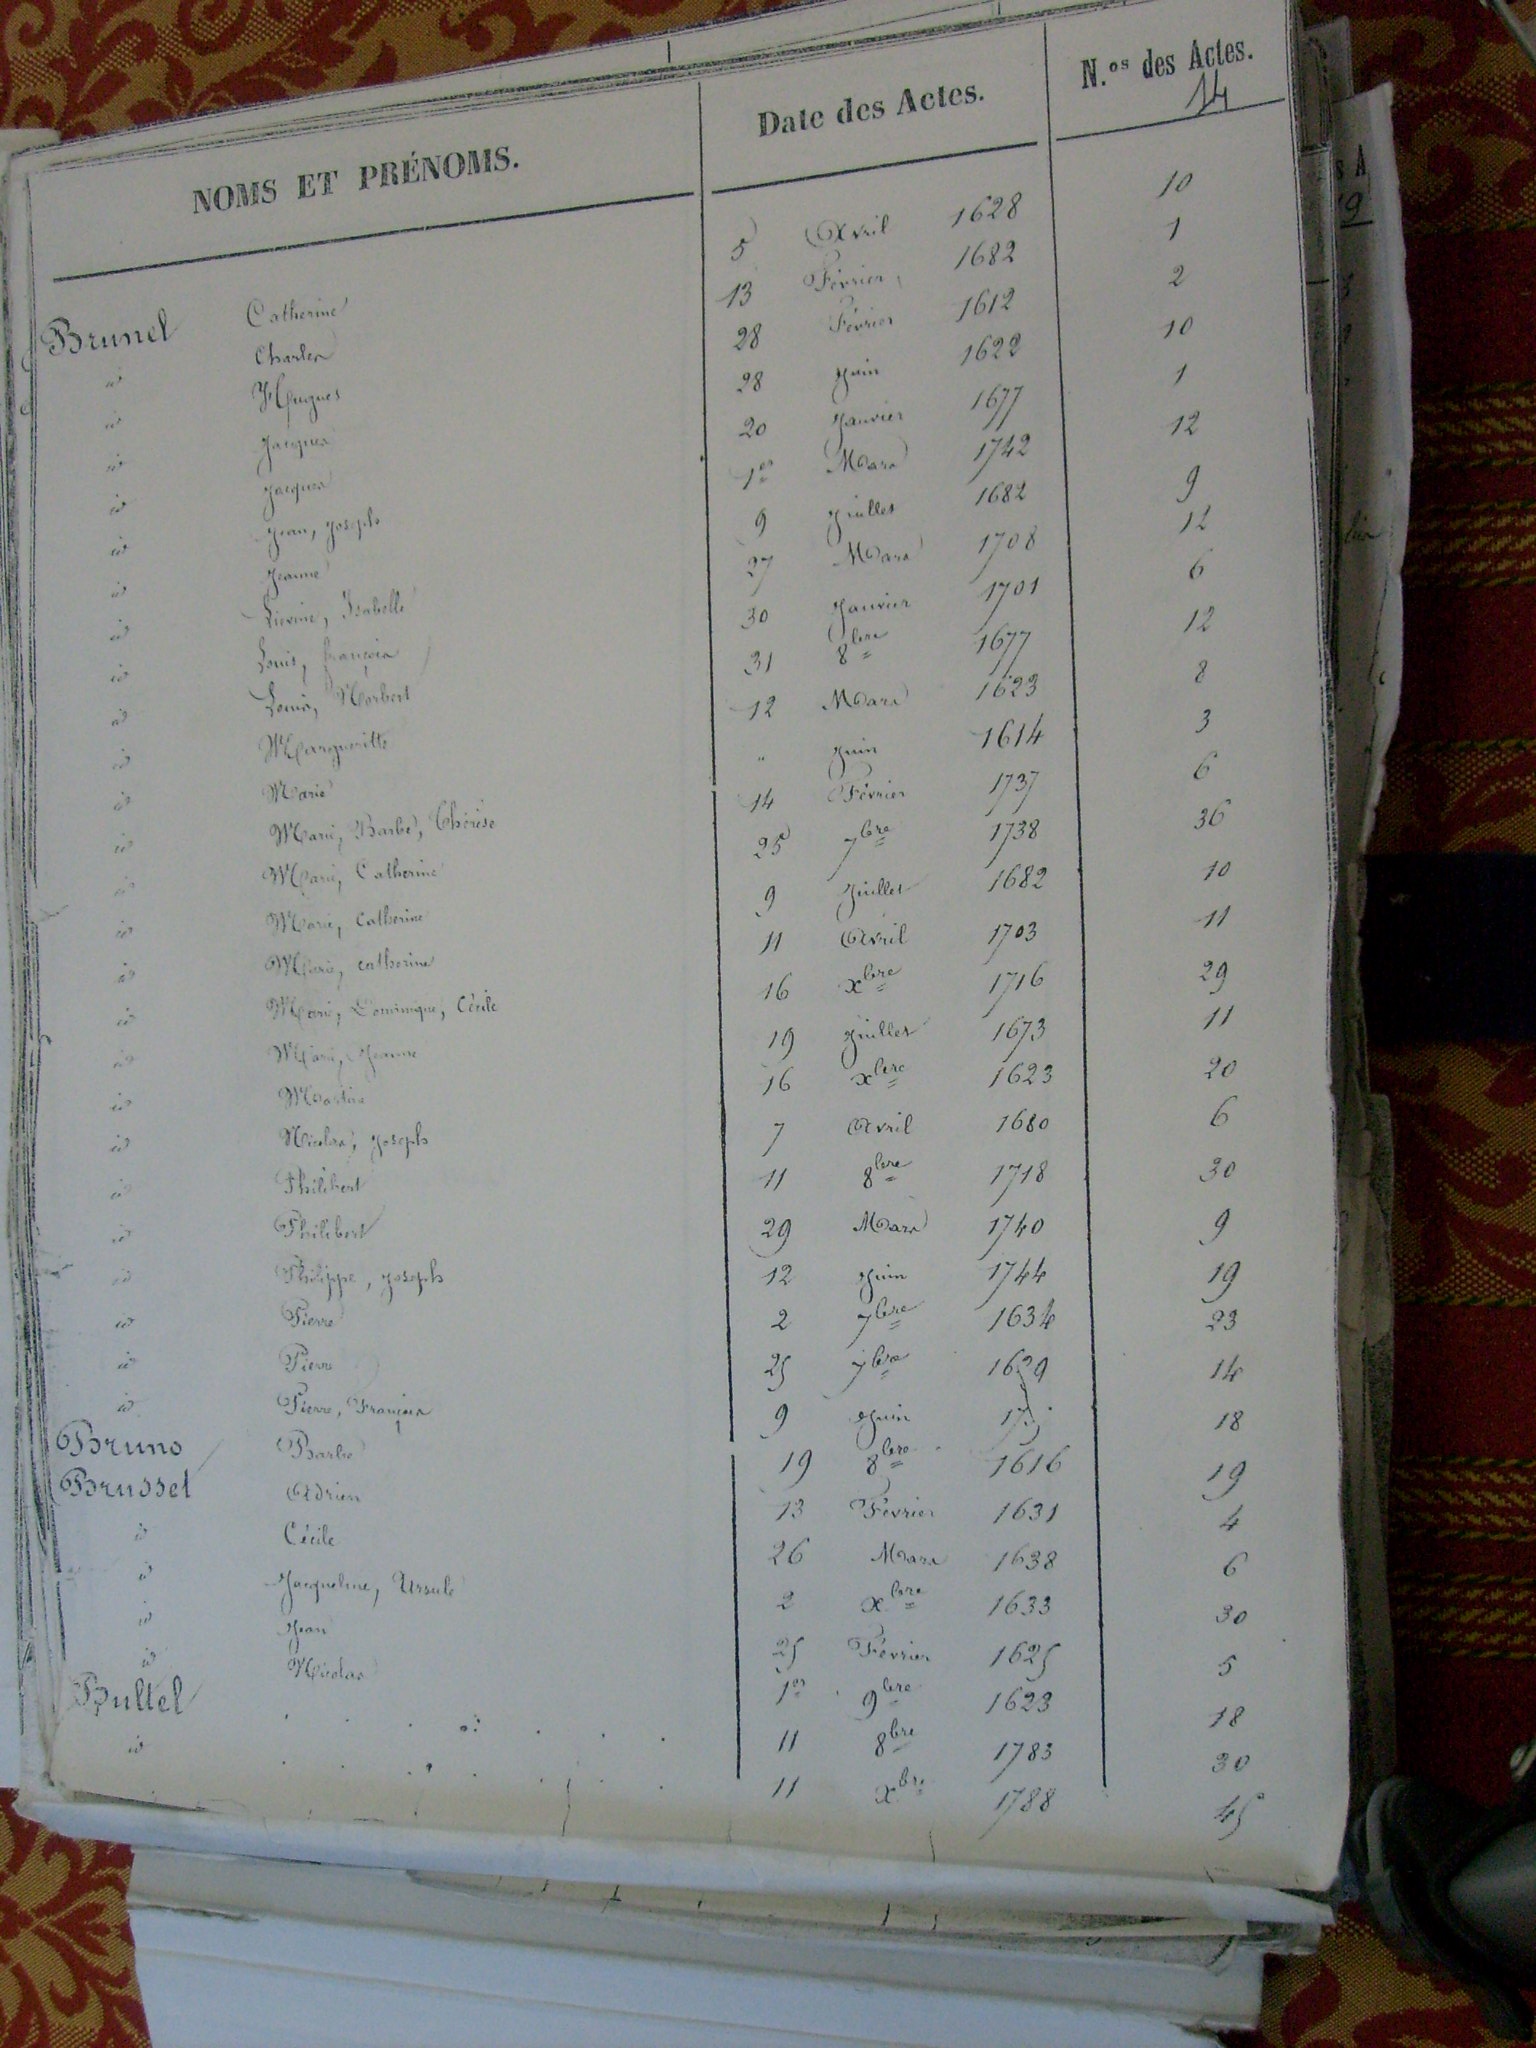 NOMS ET PRÉNOMS. Date des Actes. N.os des Actes.
14
Brunel Catherine 5 Avril 1628 10
id Charles 13 Février 1682 1
id Hugues 28 Février 1612 2
id Jacques 28 Juin 1622 10
id Jacques 20 Janvier 1677 1
id Jean, Joseph 1er Mars 1742 12
id Jeanne 9 Juillet 1682 9
id Lievine, Isabelle 27 Mars 1708 12
id Louis, françois 30 Janvier 1701 6
id Louis, Norbert 31 8bre 1677 12
id Margueritte 12 Mars 1623 8
id Marie " Juin 1614 3
id Marie, Barbe, Thérèse 14 Février 1737 6
id Marie, Catherine 25 7bre 1738 36
id Marie, Catherine 9 Juillet 1682 10
id Marie, catherine 11 Avril 1703 11
id Marie, Dominique, Cécile 16 xbre 1716 29
id Marie, Jeanne 19 Juillet 1673 11
id Martin 16 xbre 1623 20
id Nicolas, Joseph 7 Avril 1680 6
id Philibert 11 8bre 1718 30
id Philibert 29 Mars 1740 9
id Philippe, Joseph 12 Juin 1744 19
id Pierre 2 7bre 1634 23
id Pierre 25 7bre 1629 14
id Pierre, François 9 Juin 18
Bruno Barbe 19 8bre 1616 19
Brusset Adrien 13 Février 1631 4
id Cécile 26 Mars 1638 6
id Jacqueline, Ursule 2 xbre 1633 30
id Jean 25 Février 1625 5
id Nicolas 1er 9bre 1623 18
Bultel 11 8bre 1783 30
id 11 xbre 1788 45